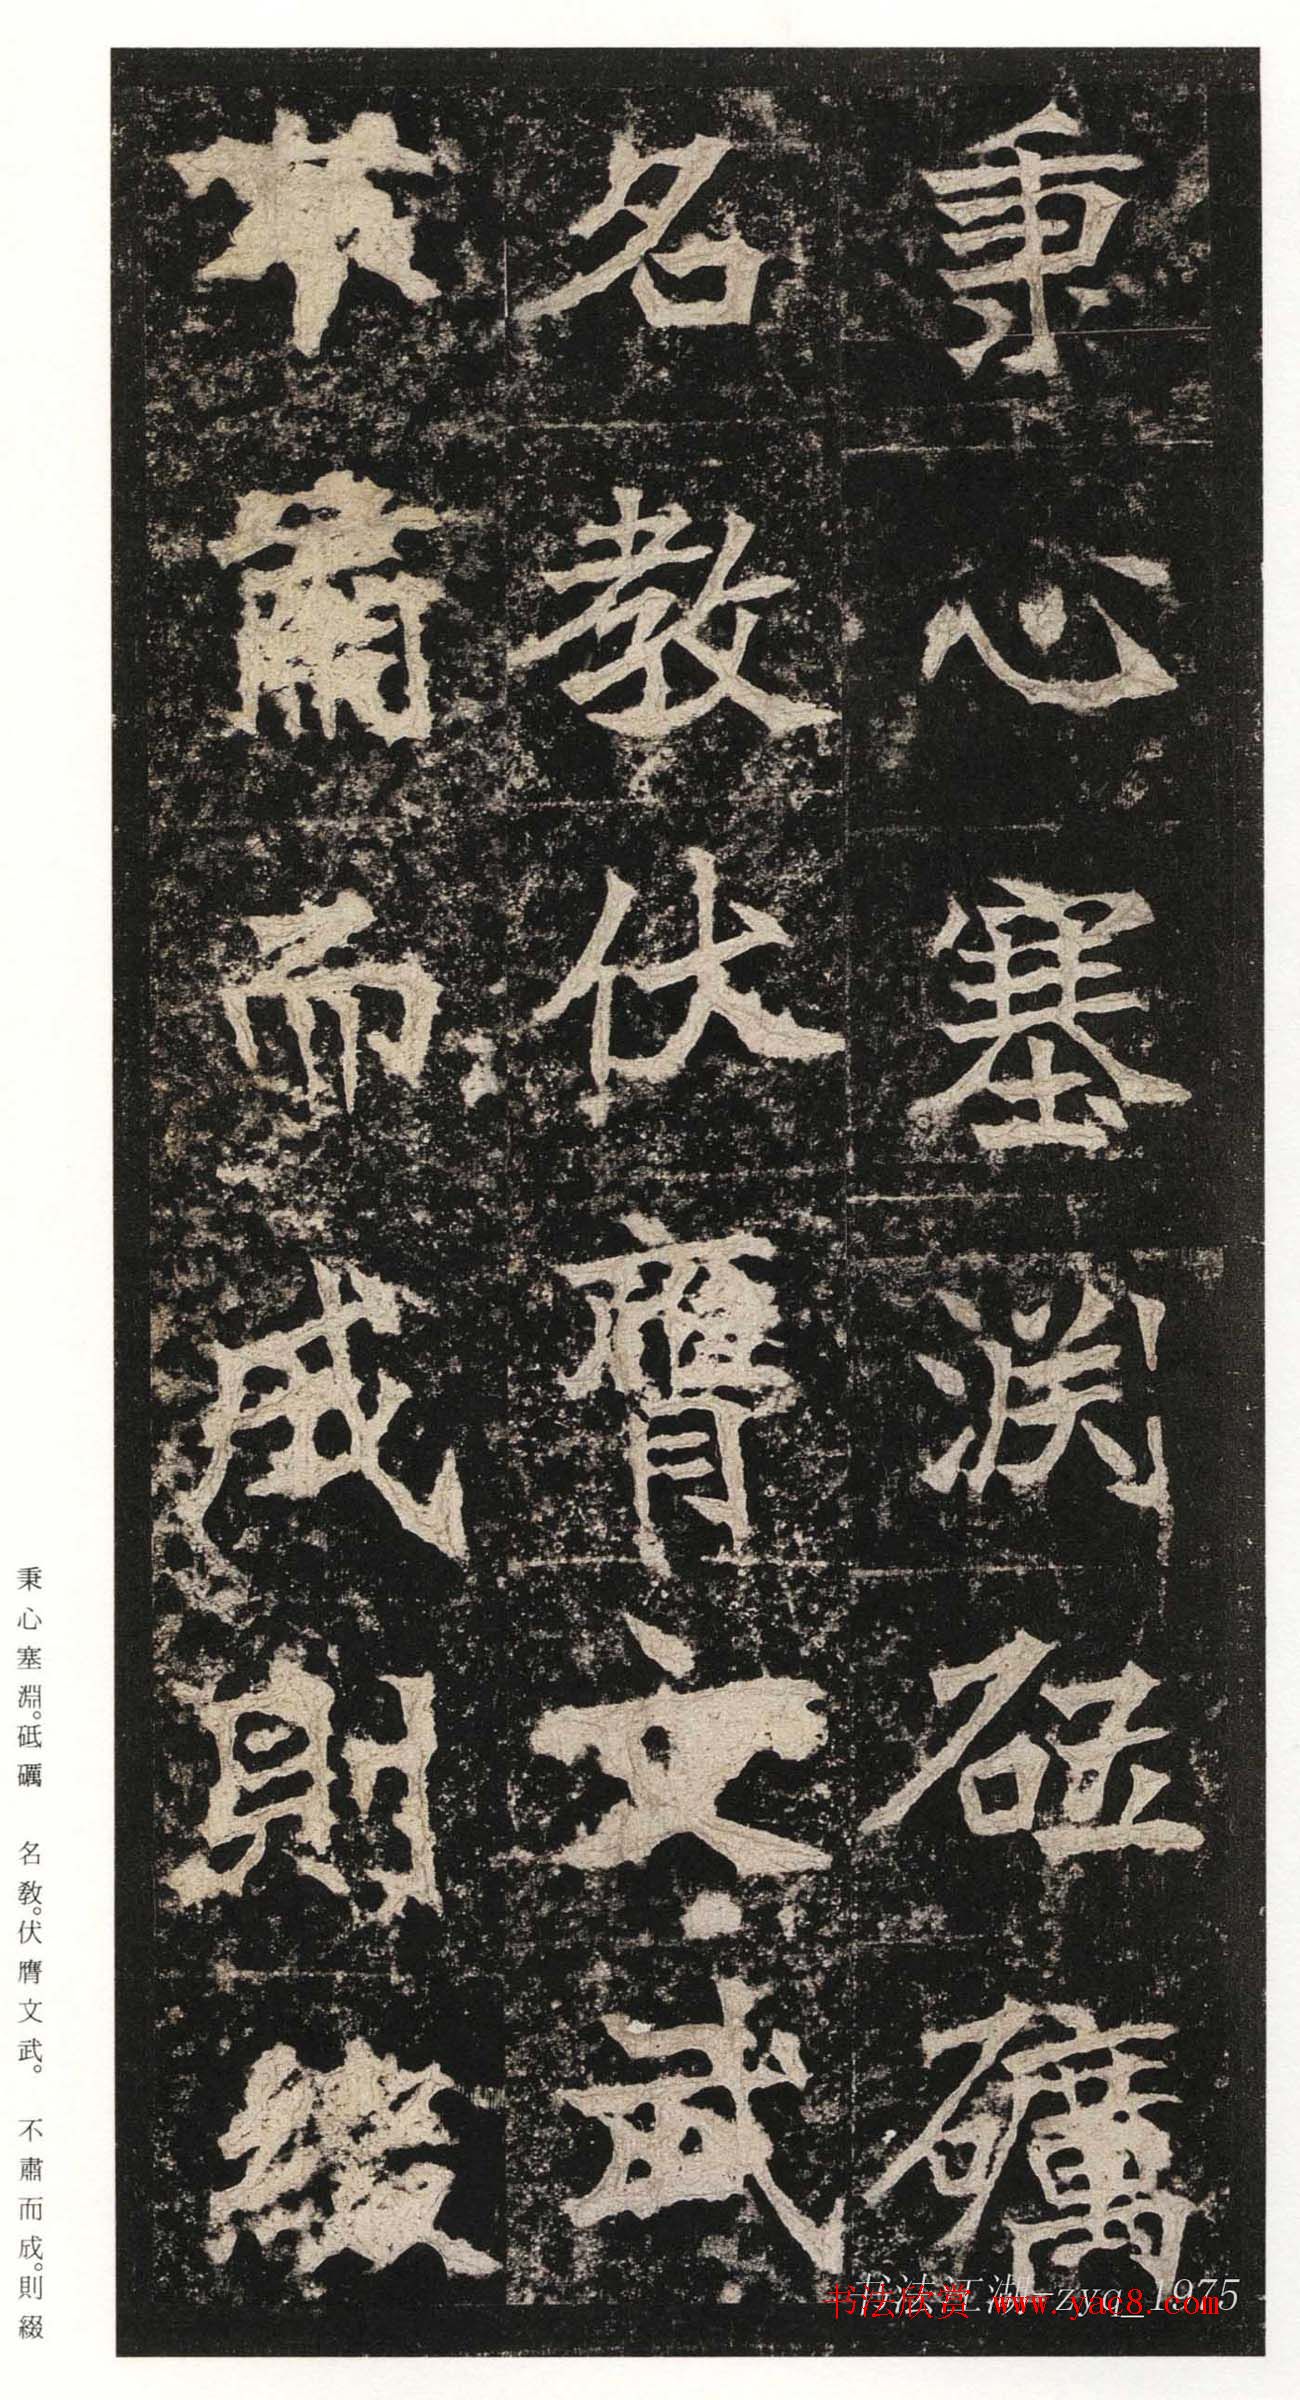 秉心塞淵砥礪
名教伏膺文武
不肅而成則綴
秉心塞淵。砥礪 名教。伏膺文武。 不肅而成。則綴
书法江湖-zyq_1975
书法欣赏 www.yac8.com